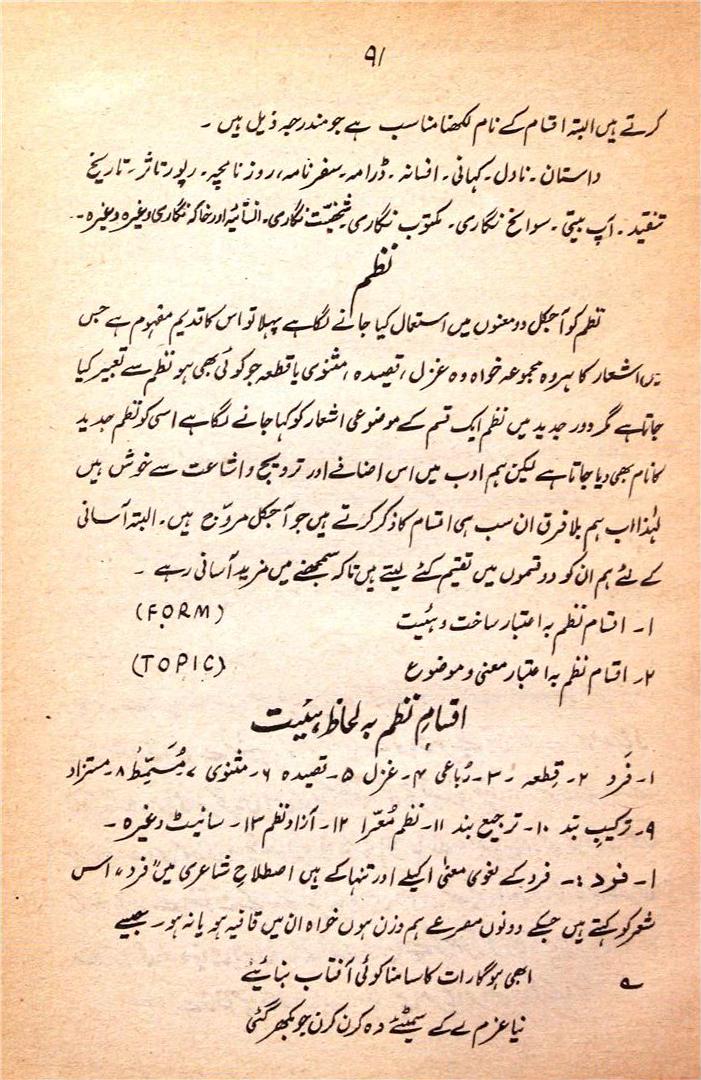 ۹۱
کرتے ہیں البتہ اقسام کے نام لکھنا مناسب ہے جو مندرجہ ذیل ہیں ۔
داستان ۔ ناول ۔ کہانی ۔ افسانہ ۔ ڈرامہ ۔ سفرنامہ، روزنامچہ ۔ رپورتاثر ۔ تاریخ
تنقید ۔ آپ بیتی ۔ سوانح نگاری ۔ مکتوب نگاری ۔ شخصیّت نگاری ۔ انسائیہ اور خاکہ نگاری وغیرہ وغیرہ ۔
نظم
نظم کو آجکل دو معنوں میں استعمال کیا جانے لگا ہے پہلا تو اس کا قدیم مفہوم ہے جس
میں اشعار کا ہر وہ مجموعہ خواہ وہ غزل، قصیدہ، مثنوی یا قطعہ جو کوئی بھی ہو نظم سے تعبیر کیا
جاتا ہے مگر دور جدید میں نظم ایک قسم کے موضوعی اشعار کو کہا جانے لگا ہے اسی کو نظم جدید
کا نام بھی دیا جاتا ہے لیکن ہم ادب میں اس اضافے اور ترویج و اشاعت سے خوش ہیں
لہٰذا اب ہم بلا فرق ان سب ہی اقسام کا ذکر کرتے ہیں جو آجکل مروّج ہیں ۔ البتہ آسانی
کے لئے ہم ان کو دو قسموں میں تقیم کئے لیتے ہیں تاکہ سمجھنے میں مزید آسانی رہے ۔
۱۔ اقسام نظم بہ اعتبار ساخت و ہئیت (FORM)
۲۔ اقسام نظم بہ اعتبار معنی و موضوع (TOPIC)
اقسامِ نظم بہ لحاظ ہیئت
۱۔ فَرد ۲۔ قِطعہ ۔ ۳۔ رُباعی ۴۔ غزل ۵۔ قصیدہ ۶۔ مثنوی ۷۔ مُسَمّطُ ۸۔ مستزاد
۹۔ ترکیب بند ۱۰۔ ترجیع بند ۱۱۔ نظم مُعرّا ۱۲۔ آزاد نظم ۱۳۔ سانیٹ وغیرہ ۔
۱۔ فرد :۔ فرد کے لغوی معنیٰ اکیلے اور تنہا کے ہیں اصطلاح شاعری میں "فرد" اس
شعر کو کہتے ہیں جسکے دونوں مصرعے ہم وزن ہوں خواہ ان میں قافیہ ہو یا نہ ہو ۔ جیسے
؎ ابھی ہوگا رات کا سامنا کوئی آفتاب بنائیے
نیا عزم لے کے سمیٹئے وہ کرن کرن جو بکھر گئی